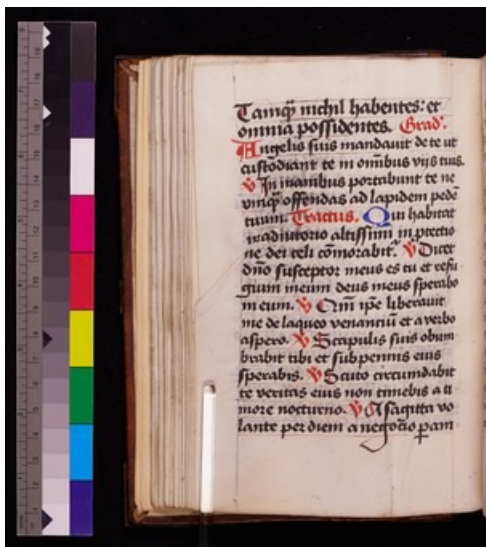 Tamq̃ nichil habentes: et
omnia possidentes. Grad'.
Angelis suis mandauit de te ut
custodiant te in om̃ibus vijs tuis.
℣ In manibus portabunt te ne
vnq̃ offendas ad lapidem pedẽ
tuum. Tractus. Qui habitat
in adiutorio altissimi in ꝓtectio
ne dei celi cõmorabit᷑. ℣ Dicet
dño susceptor meus es tu et refu
gium meum deus meus sperabo
in eum. ℣ Qm̃ ip̃e liberauit
me de laqueo venantiũ et a verbo
aspero. ℣ Scapulis suis obum
brabit tibi et sub pennis eius
sperabis. ℣ Scuto circumdabit
te veritas eius non timebis a ti
more nocturno. ℣ A sagitta vo
lante per diem a negocio ꝑam